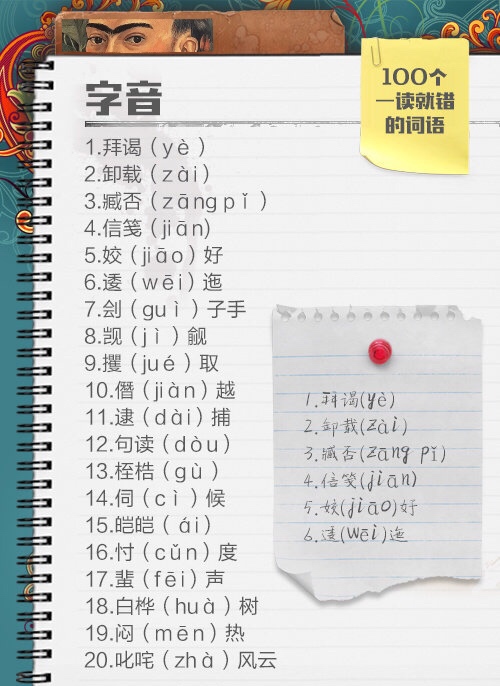 100个
一读就错
的词语
字音
1.拜谒（yè）
2.卸载（zài）
3.臧否（zāngpǐ）
4.信笺（jiān)
5.姣（jiāo）好
6.逶（wēi）迤
7.刽（guì）子手
8.觊（jì）觎
9.攫（jué）取
10.僭（jiàn）越
11.逮（dài）捕
12.句读（dòu）
13.桎梏（gù）
14.伺（cì）候
15.皑皑（ái）
16.忖（cǔn）度
17.蜚（fēi）声
18.白桦（huà）树
19.闷（mēn）热
20.叱咤（zhà）风云
1.拜谒(yè)
2.卸载(zài)
3.臧否(zāng pǐ)
4.信笺(jiān)
5.姣(jiāo)好
6.逶(wēi)迤